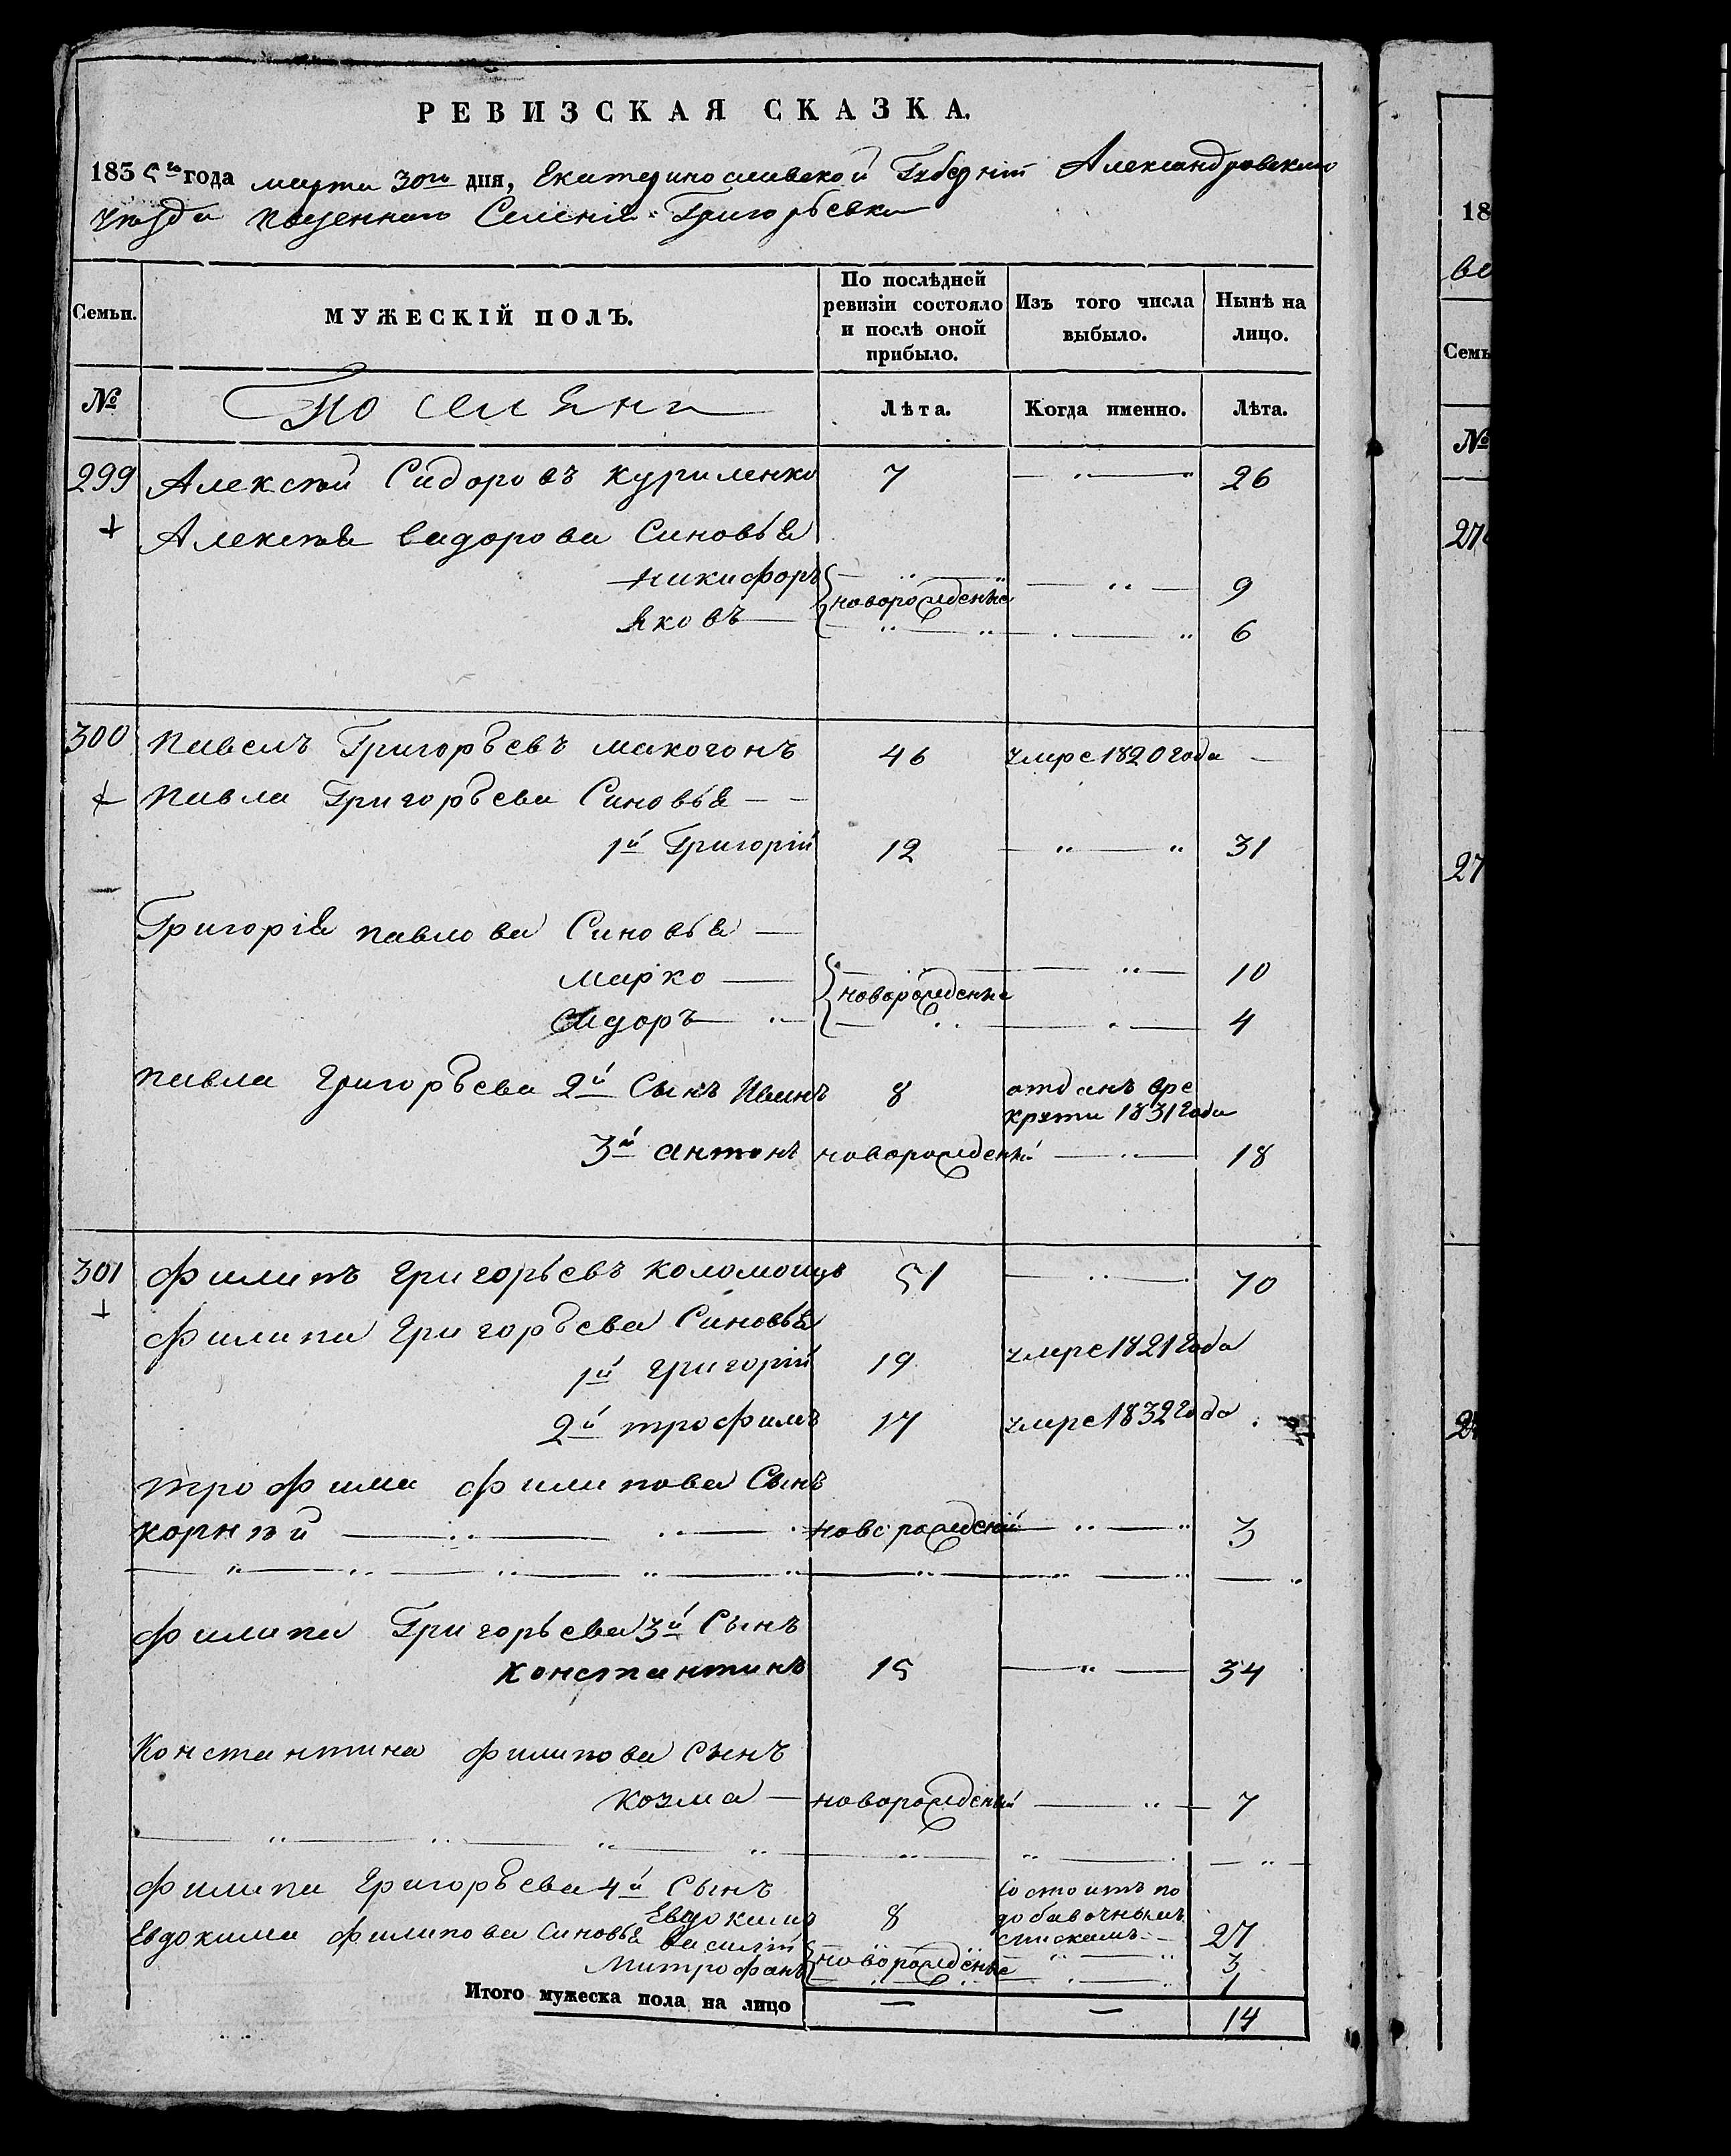 РЕВИЗСКАЯ СКАЗКА.
1835го года марта 30го дня, Екатеринославской Губерніи Александровского
уѣзда Казенного Селенія Григорьевки
Семьи. МУЖЕСКІЙ ПОЛЪ. По послѣдней ревизіи состояло и послѣ оной прибыло. Изъ того числа выбыло. Нынѣ на лицо.
№ Поселяни Лѣта. Когда именно. Лѣта.
299 Алексѣй Сидоровъ Куриленко 7 — " — " 26
Алексѣя Сидорова Синовья
Никифоръ новорожденые — " — 9
Яковъ — " — " 6
300 Павелъ Григорьевъ Макогонъ 46 умре 1820 года —
Павла Григорьева Синовья — —
1й Григорій 12 — " — " 31
Григорія Павлова Синовья —
Марко — новорожденые — " — 10
Сидоръ — " — 4
Павла Григорьева 2й Сынъ Иванъ 8 отданъ вре
крути 1831 года
3й Антонъ новорожденый — " — 18
301 Филипъ Григорьевъ Коломоицъ 51 — " — 70
Филипа Григорьева Синовья
1й Григорій 19 умре 1821 года
2й Трофимъ 17 умре 1832 года
Трофима Филипова Сынъ
Корнѣй — " — " — новорожденый — " — " 3
Филипа Григорьева 3й Сынъ
Константинъ 15 — " — 34
Константина Филипова Сынъ
Козма — новорожденый — " — 7
Филипа Григорьева 4й Сынъ
Евдокимъ 8 Состоитъ по
добавочнымъ
спискамъ — 27
Евдокима Филипова Синовья Василій новорожденые — " — " 3
Митрофанъ — " — " 1
Итого мужеска пола на лицо — — 14
18
во
Семь
№
27
27
2